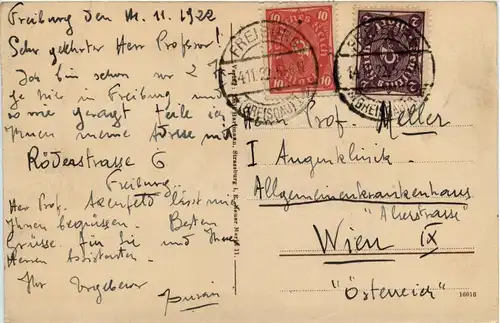 Freiburg den 11.11.1922
Sehr geehrter Herr Professor!
Ich bin schon vor 2
ge hier in Freiburg und
so wie gesagt teile ich
Ihnen meine Adresse mit
Röderstrasse 6
Freiburg
Herr Prof. Axenfeld lässt
Ihnen begrüssen. Besten
Grüsse für Sie und Ihre
Herren Assistenten.
Ihr Ergebener
10 Deutsches Reich 10
2 Deutsches Reich 2
FREIBURG
14.11.22
(BREISGAU)
Prof. Meller
I Augenklinik
Allgemeinenkrankenhaus
"Alserstrasse"
Wien IX
"Österreich"
Hartmann, Strassburg i. E. Neuer Markt 11.
16016